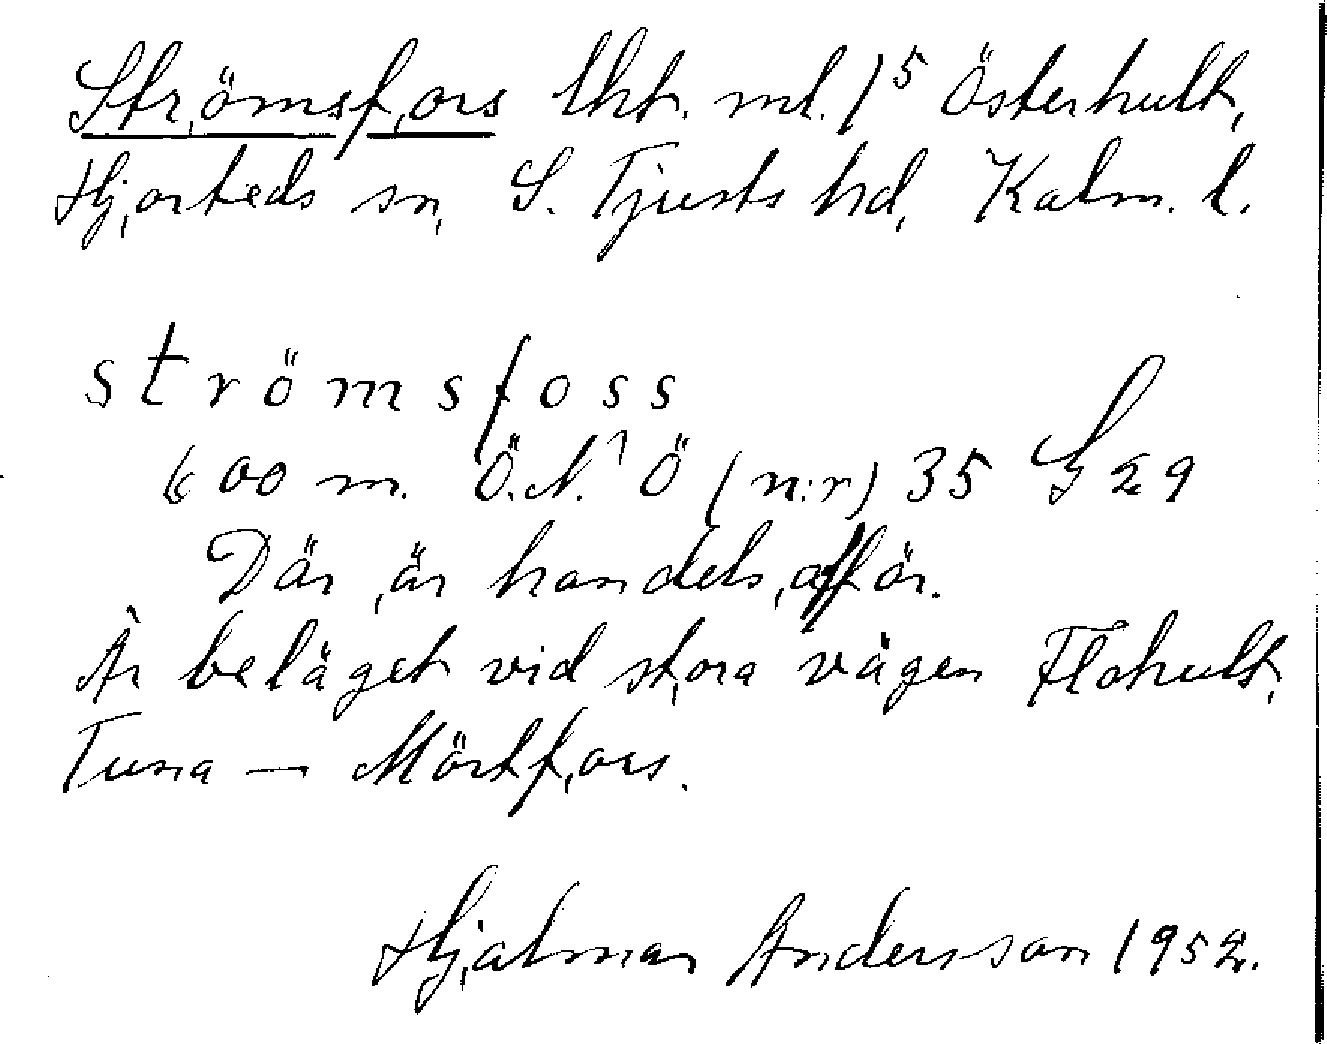 Strömsfors lht. ml. 1⁵ Österhult,
Hjorteds sn, S. Tjusts hd, Kalm. l.
strömsfoss
600 m. Ö.N.Ö (n:r) 35 G 29
Där är handelsaffär.
Är beläget vid stora vägen Flohult,
Tuna — Mörtfors.
Hjalmar Andersson 1952.